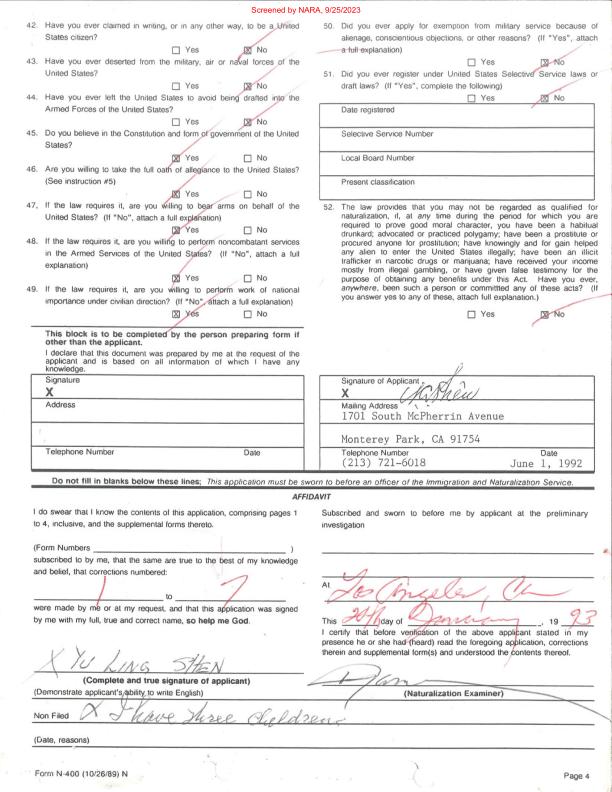 Screened by NARA, 9/25/2023
42. Have you ever claimed in writing, or in any other way, to be a United
States citizen?
☐ Yes ☒ No
43. Have you ever deserted from the military, air or naval forces of the
United States?
☐ Yes ☒ No
44. Have you ever left the United States to avoid being drafted into the
Armed Forces of the United States?
☐ Yes ☒ No
45. Do you believe in the Constitution and form of government of the United
States?
☒ Yes ☐ No
46. Are you willing to take the full oath of allegiance to the United States?
(See instruction #5)
☒ Yes ☐ No
47. If the law requires it, are you willing to bear arms on behalf of the
United States? (If "No", attach a full explanation)
☒ Yes ☐ No
48. If the law requires it, are you willing to perform noncombatant services
in the Armed Services of the United States? (If "No", attach a full
explanation)
☒ Yes ☐ No
49. If the law requires it, are you willing to perform work of national
importance under civilian direction? (If "No", attach a full explanation)
☒ Yes ☐ No
This block is to be completed by the person preparing form if
other than the applicant.
I declare that this document was prepared by me at the request of the
applicant and is based on all information of which I have any
knowledge.
Signature
X
Address
Telephone Number Date
50. Did you ever apply for exemption from military service because of
alienage, conscientious objections, or other reasons? (If "Yes", attach
a full explanation)
☐ Yes ☒ No
51. Did you ever register under United States Selective Service laws or
draft laws? (If "Yes", complete the following)
☐ Yes ☒ No
Date registered
Selective Service Number
Local Board Number
Present classification
52. The law provides that you may not be regarded as qualified for
naturalization, if, at any time during the period for which you are
required to prove good moral character, you have been a habitual
drunkard; advocated or practiced polygamy; have been a prostitute or
procured anyone for prostitution; have knowingly and for gain helped
any alien to enter the United States illegally; have been an illicit
trafficker in narcotic drugs or marijuana; have received your income
mostly from illegal gambling, or have given false testimony for the
purpose of obtaining any benefits under this Act. Have you ever,
anywhere, been such a person or committed any of these acts? (If
you answer yes to any of these, attach full explanation.)
☐ Yes ☒ No
Signature of Applicant
X
Mailing Address
1701 South McPherrin Avenue
Monterey Park, CA 91754
Telephone Number Date
(213) 721-6018 June 1, 1992
Do not fill in blanks below these lines; This application must be sworn to before an officer of the Immigration and Naturalization Service.
AFFIDAVIT
I do swear that I know the contents of this application, comprising pages 1
to 4, inclusive, and the supplemental forms thereto.
(Form Numbers )
subscribed to by me, that the same are true to the best of my knowledge
and belief, that corrections numbered:
1 to 7
were made by me or at my request, and that this application was signed
by me with my full, true and correct name, so help me God.
X YU LING SHEN
(Complete and true signature of applicant)
(Demonstrate applicant's ability to write English)
Non Filed X I have three Children
(Date, reasons)
Subscribed and sworn to before me by applicant at the preliminary
investigation
At Los Angeles, Ca
This day of January, 19 93
I certify that before verification of the above applicant stated in my
presence he or she had (heard) read the foregoing application, corrections
therein and supplemental form(s) and understood the contents thereof.
(Naturalization Examiner)
Form N-400 (10/26/89) N Page 4